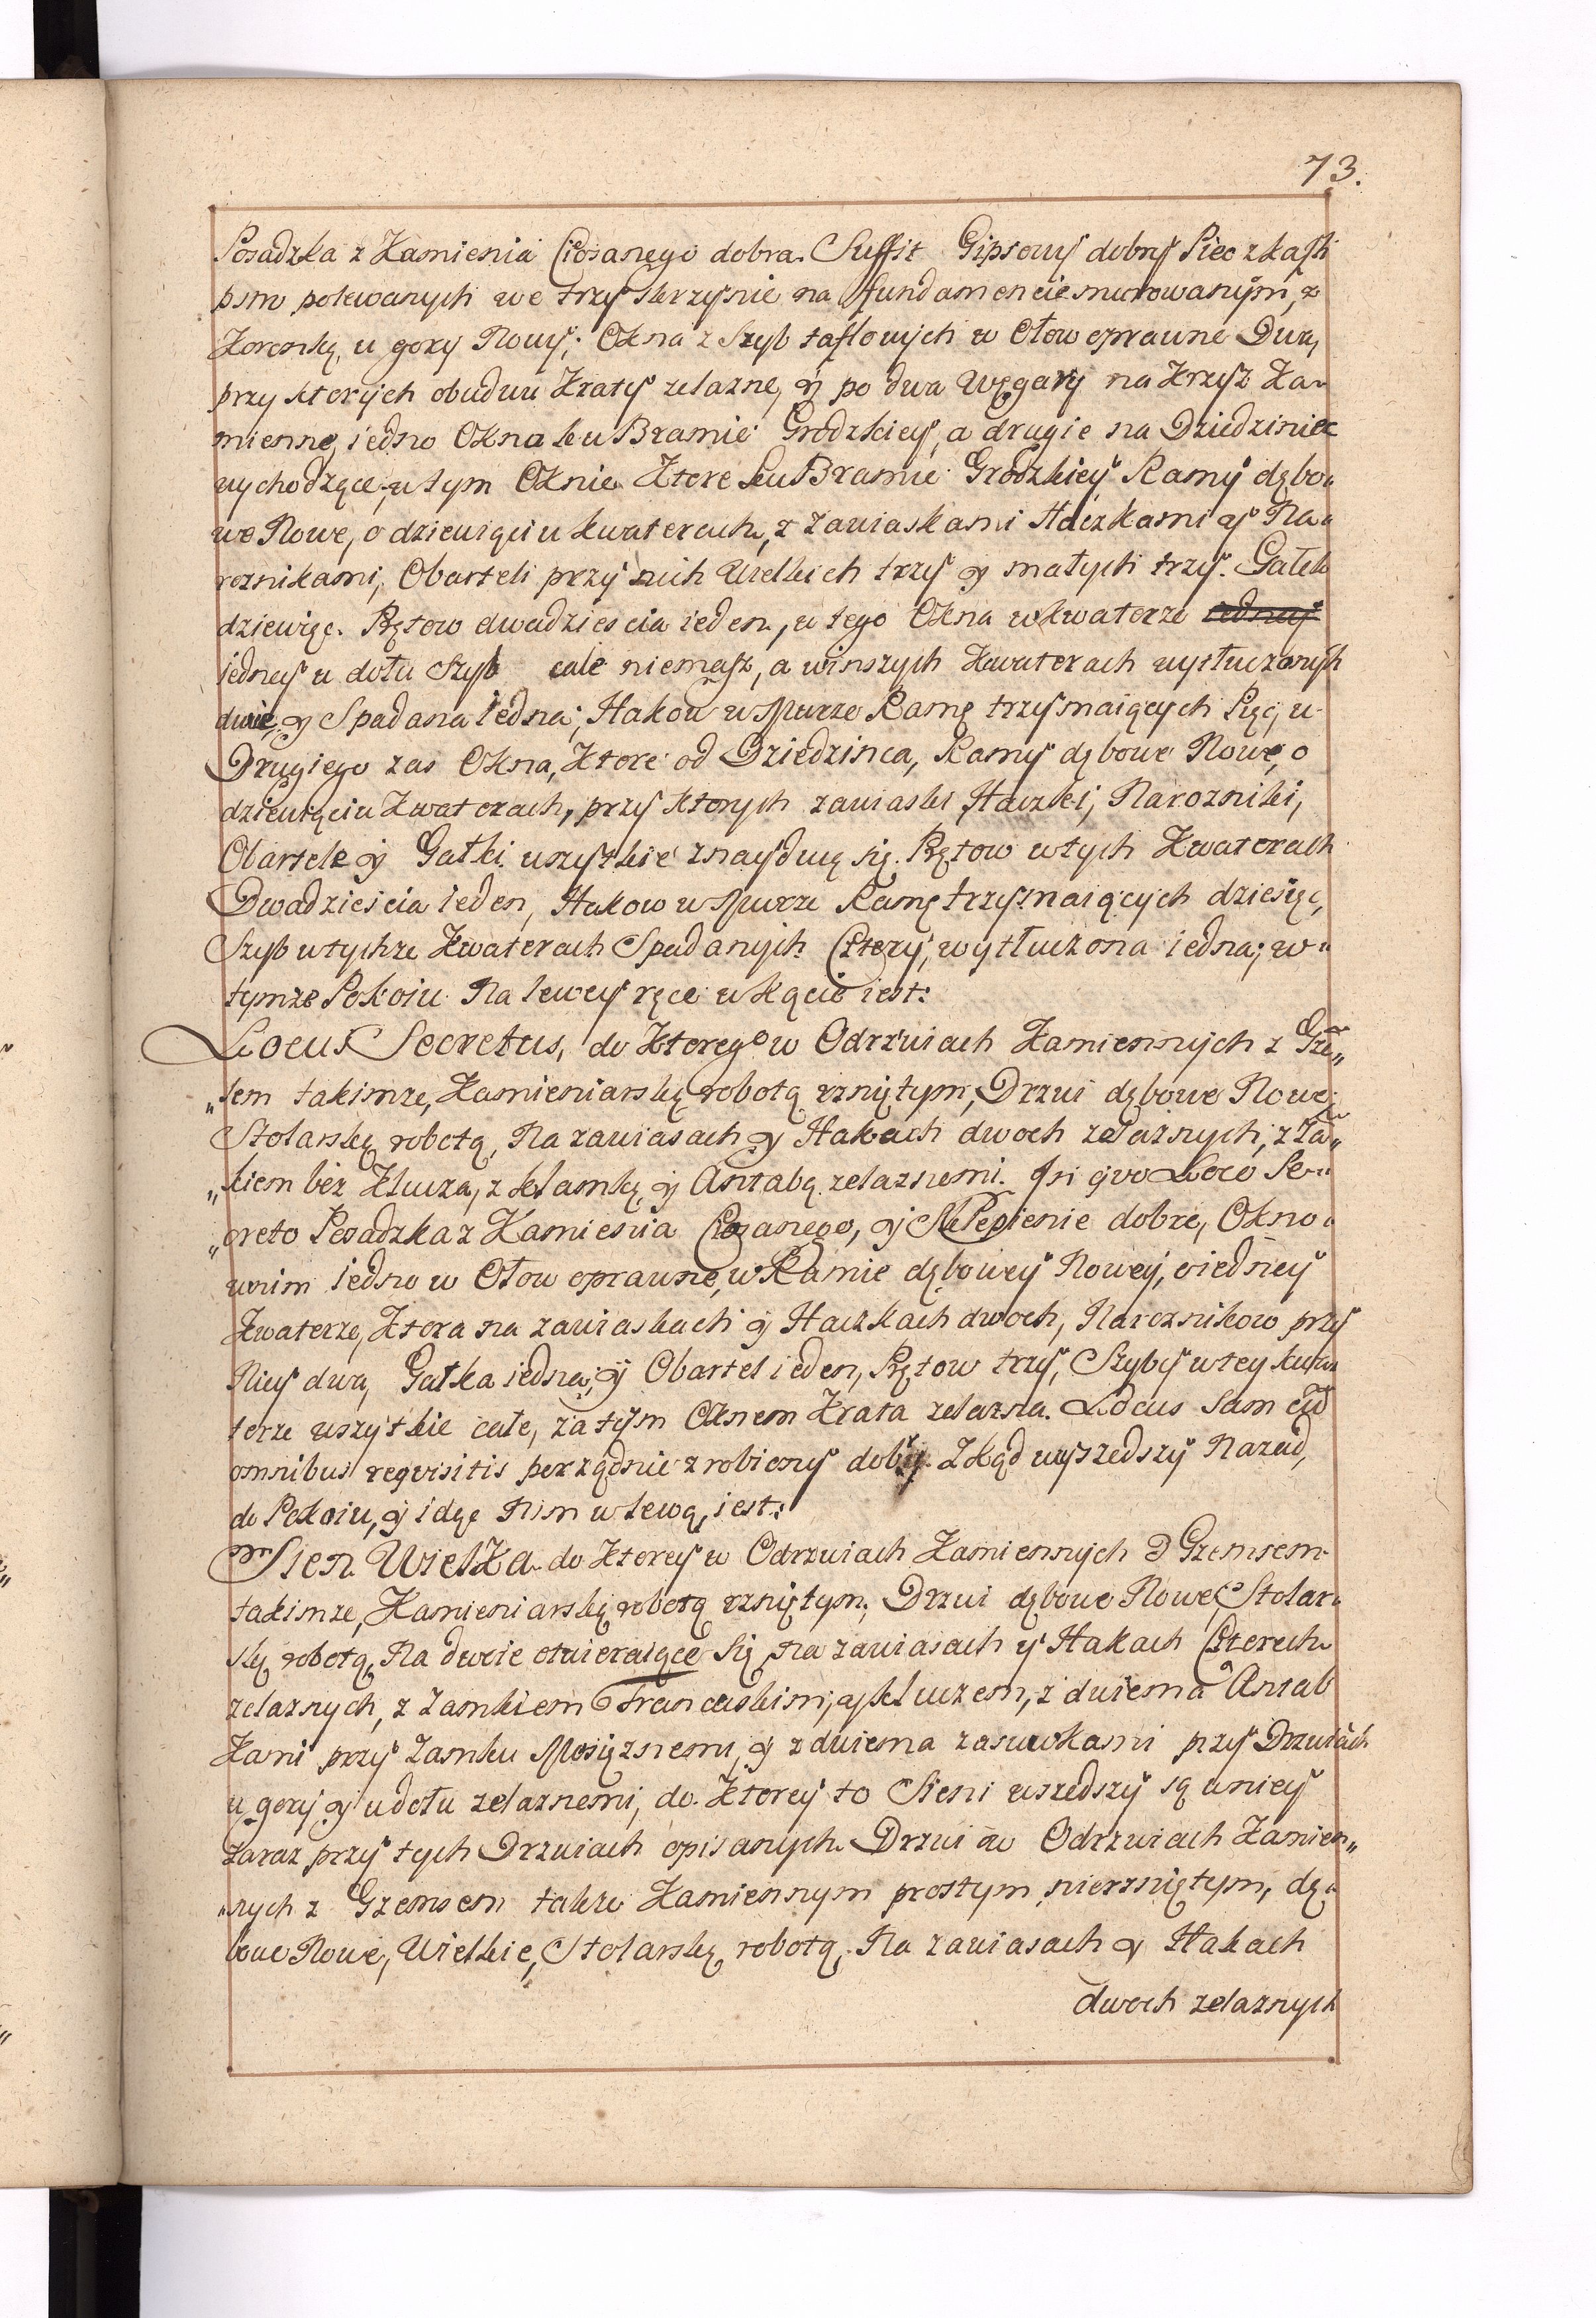 73.
Posadzka z Kamienia Ciosanego dobra. Suffit Gipsowy dobry Piec z kaffli
psm polewanych we trzy skrzynie na ffundamencie murowanym, z
Koronką u gory Nowy; Okna z Szyb taflowych w Ołow oprawne Dwa,
przy ktorych obudwu Kraty zelazne, y po dwa Węgary na Krzyż Ka„
mienne, iedno Okna ku Bramie Grodzkiey, a drugie na Dziedziniec
wychodzące, u tym Oknie Ktore ku Bramie Grodzkiey Ramy dębo„
we Nowe, o dziewięciu kwaterach, z zawiaskami Haczkami y Na„
roznikami, Obarteli przy nich Wielkich trzy y małych trzy. Gałek
dziewięc. Prętow dwadziescia ieden, u tego Okna w kwaterze iedney
iedney u dołu Szyb cale niemasz, a w inszych Kwaterach wytłuczonych
dwie y Spadana iedna; Hakow w Murze Ramę trzymaiących Pięć, u
Drugiego zas Okna, Ktore od Dziedzinca, Ramy dębowe Nowe, o
dziewięciu Kwaterach, przy ktorych zawiaski, Haczki, Narozniki,
Obartele y Gałki wszystkie znayduią się. Prętow w tych Kwaterach
Dwadzieścia ieden, Hakow w Murze Ramę trzymaiących dziesięć,
Szyb w tychze Kwaterach Spadanych Cztery, wytłuczona iedna; w„
tymze Pokoiu Na lewey ręce w kącie iest:
Locus Secretus, do Ktorego w Odrzwiach Kamiennych z Gze„
„sem takimze, Kamieniarską robotą rzniętym, Drzwi dębowe Nowe,
Stolarską robotą, Na zawiasach y Hakach dwoch zelaznych, z Za„
„kiem bez Klucza, z klamką y Antabą zelaznemi. In quo Loco Se„
„creto Posadzka z Kamienia Ciosanego, y Sklepienie dobre, Okno„
w nim iedno w Ołow oprawne, w Ramie dębowey Nowey, o iedney
Kwaterze, Ktora na zawiaskach y Haczkach dwoch, Naroznikow przy
Niey dwa, Gałka iedna, y Obartel ieden, Prętow trzy, Szyby w tey kwa„
terze wszytkie całe, za tym Oknem Krata zelazna. Locus sam cũ
omnibus requisitis porządnie zrobiony dobry. Zkąd wyszedszy Nazad,
do Pokoiu, y idąc Nim w lewą, iest:
Sien Wielka do Ktorey w Odrzwiach Kamiennych z Gzemsem
takimze, Kamieniarską robotą rzniętym, Drzwi dębowe Nowe Stolar„
ską robotą, Na dwoie otwieraiące się na zawiasach y Hakach Czterech
zelaznych, z Zamkiem Francuskim, y kluczem, z dwiema Antab
Kami przy Zamku Mosięznemi, y z dwiema zasuwkami przy Drzwiach
u gory y u dołu zelaznemi, do Ktorey to Sieni wszedszy są w niey
zaraz przy tych Drzwiach opisanych Drzwi w Odrzwiach Kamien„
„nych z Gzemsem takze Kamiennym prostym nierzniętym, dę„
bowe Nowe, Wielkie, Stolarską robotą, Na zawiasach y Hakach
dwoch zelaznych